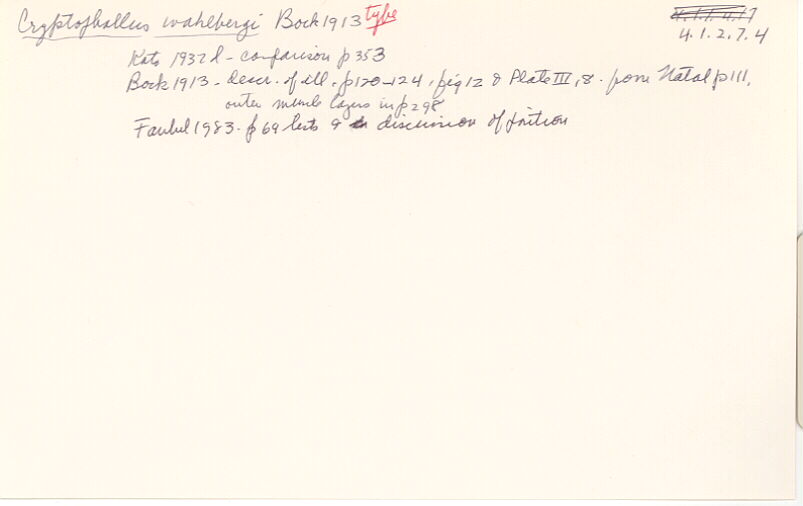 Cryptophallus wahlbergi Bock 1913 type
4.1.2.7.4
Kato 1937d - comparison p 353
Bock 1913 - descr. & ill. p120-124, fig 12 & Plate III, 8. from Natal p111,
outer muscle layers in p298
Faubel 1983. p 69 lists & discussion of position